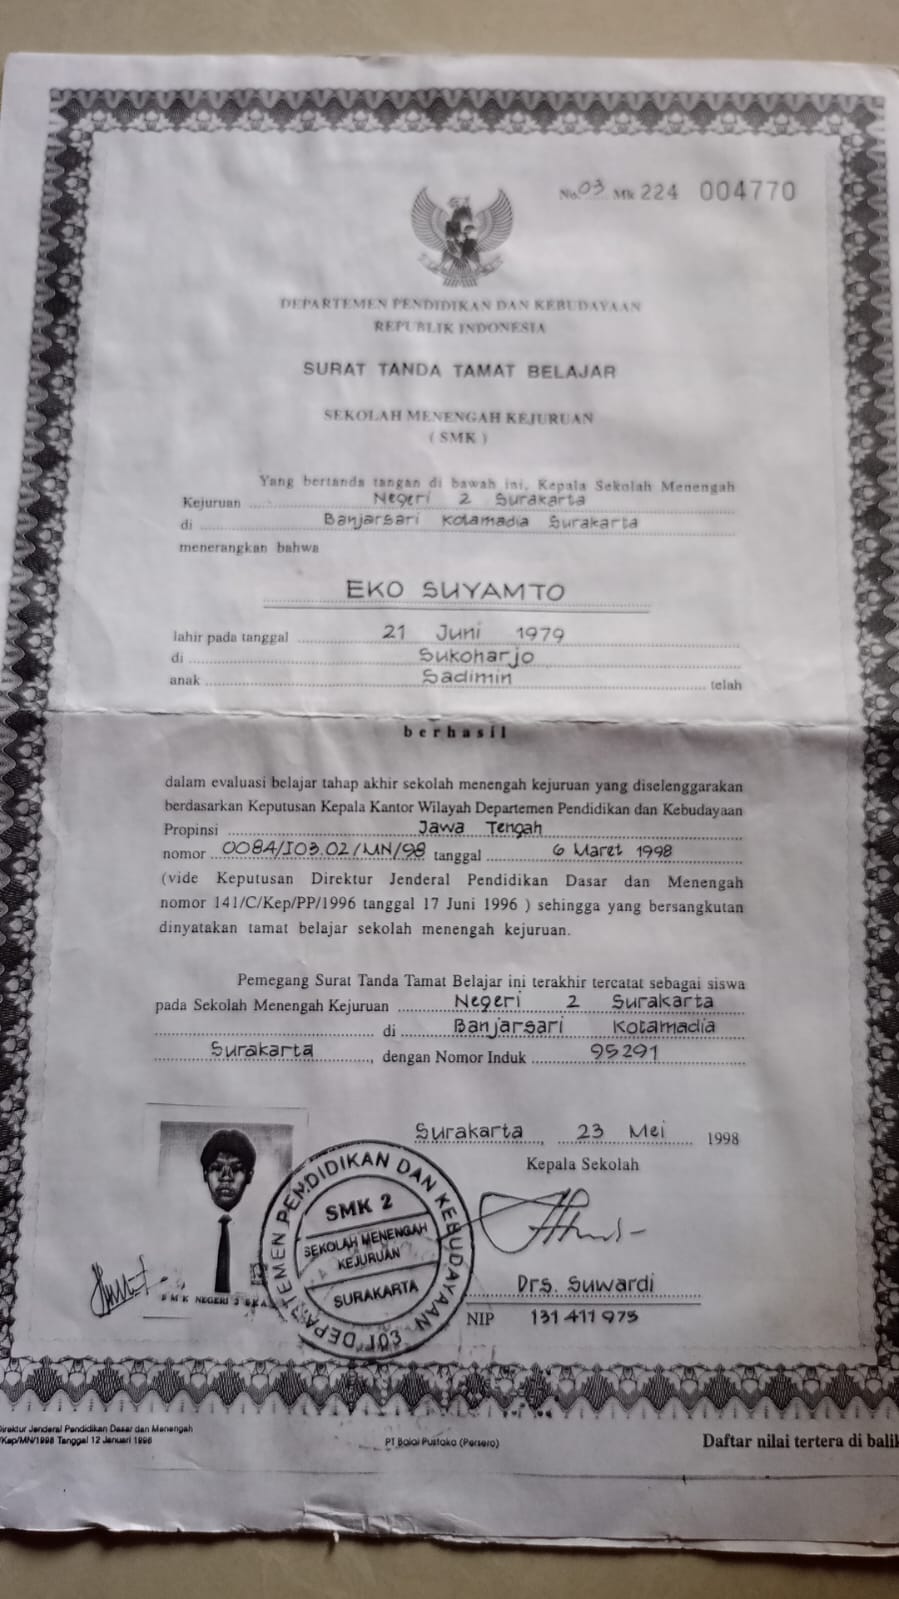 No. 03 Mk 224 004770
DEPARTEMEN PENDIDIKAN DAN KEBUDAYAAN
REPUBLIK INDONESIA
SURAT TANDA TAMAT BELAJAR
SEKOLAH MENENGAH KEJURUAN
( SMK )
Yang bertanda tangan di bawah ini, Kepala Sekolah Menengah
Kejuruan Negeri 2 Surakarta
di Banjarsari Kotamadia Surakarta
menerangkan bahwa
EKO SUYAMTO
lahir pada tanggal 21 Juni 1979
di Sukoharjo
anak Sadimin telah
berhasil
dalam evaluasi belajar tahap akhir sekolah menengah kejuruan yang diselenggarakan
berdasarkan Keputusan Kepala Kantor Wilayah Departemen Pendidikan dan Kebudayaan
Propinsi Jawa Tengah
nomor 0084/I03.02/MN/98 tanggal 6 Maret 1998
(vide Keputusan Direktur Jenderal Pendidikan Dasar dan Menengah
nomor 141/C/Kep/PP/1996 tanggal 17 Juni 1996 ) sehingga yang bersangkutan
dinyatakan tamat belajar sekolah menengah kejuruan.
Pemegang Surat Tanda Tamat Belajar ini terakhir tercatat sebagai siswa
pada Sekolah Menengah Kejuruan Negeri 2 Surakarta
di Banjarsari Kotamadia
Surakarta, dengan Nomor Induk 95291
Surakarta, 23 Mei 1998
Kepala Sekolah
DEPARTEMEN PENDIDIKAN DAN KEBUDAYAAN
SMK 2
SEKOLAH MENENGAH
KEJURUAN
SURAKARTA
I03
SMK NEGERI
Drs. Suwardi
NIP 131 411 975
Direktur Jenderal Pendidikan Dasar dan Menengah
/Kep/MN/1998 Tanggal 12 Januari 1998
PT Balai Pustaka (Persero)
Daftar nilai tertera di balik